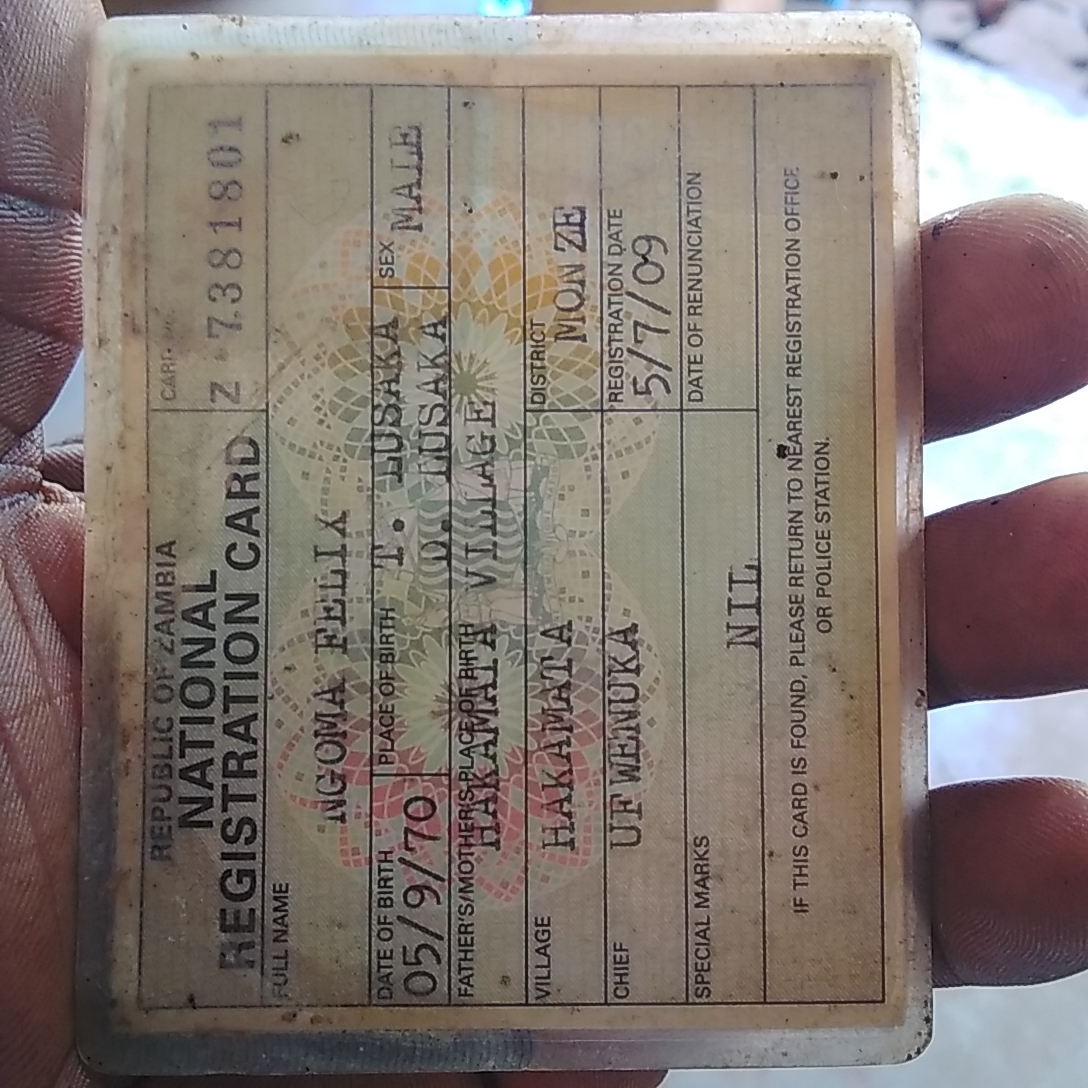 REPUBLIC OF ZAMBIA
NATIONAL
REGISTRATION CARD
CARD
Z 7381801
FULL NAME
NGOMA FELIX
DATE OF BIRTH
05/9/70
PLACE OF BIRTH
T. LUSAKA
D. LUSAKA
SEX
MALE
FATHER'S/MOTHER'S PLACE OF BIRTH
HAKAMATA VILLAGE
VILLAGE
HAKAMATA
DISTRICT
MONZE
CHIEF
UFWENUKA
REGISTRATION DATE
5/7/09
SPECIAL MARKS
NIL
DATE OF RENUNCIATION
IF THIS CARD IS FOUND, PLEASE RETURN TO NEAREST REGISTRATION OFFICE
OR POLICE STATION.